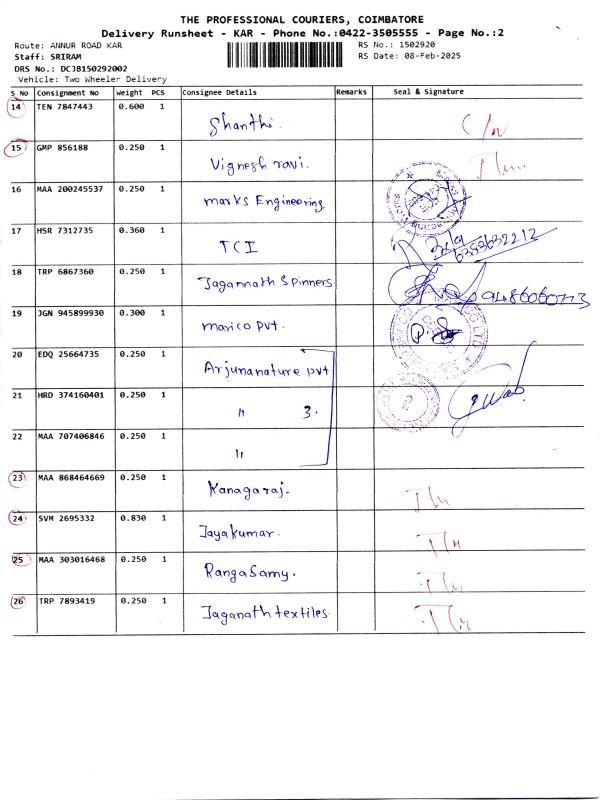 THE PROFESSIONAL COURIERS, COIMBATORE
Delivery Runsheet - KAR - Phone No.:0422-3505555 - Page No.:2
Route: ANNUR ROAD KAR RS No.: 1502920
Staff: SRIRAM RS Date: 08-Feb-2025
DRS No.: DCJB150292002
Vehicle: Two Wheeler Delivery
S No Consignment No Weight PCS Consignee Details Remarks Seal & Signature
14 TEN 7847443 0.600 1 Shanthi.
15 GMP 856188 0.250 1 Vignesh ravi.
16 MAA 200245537 0.250 1 marks Engineering
17 HSR 7312735 0.360 1 TCI 6353632212
18 TRP 6867360 0.250 1 Jagannath Spinners
19 JGN 945899930 0.300 1 marico pvt.
20 EDQ 25664735 0.250 1 Arjunanature pvt
21 HRD 374160401 0.250 1 " 3.
22 MAA 707406846 0.250 1 "
23 MAA 868464669 0.250 1 Kanagaraj.
24 SVM 2695332 0.830 1 Jayakumar.
25 MAA 303016468 0.250 1 Rangasamy.
26 TRP 7893419 0.250 1 Jaganath textiles